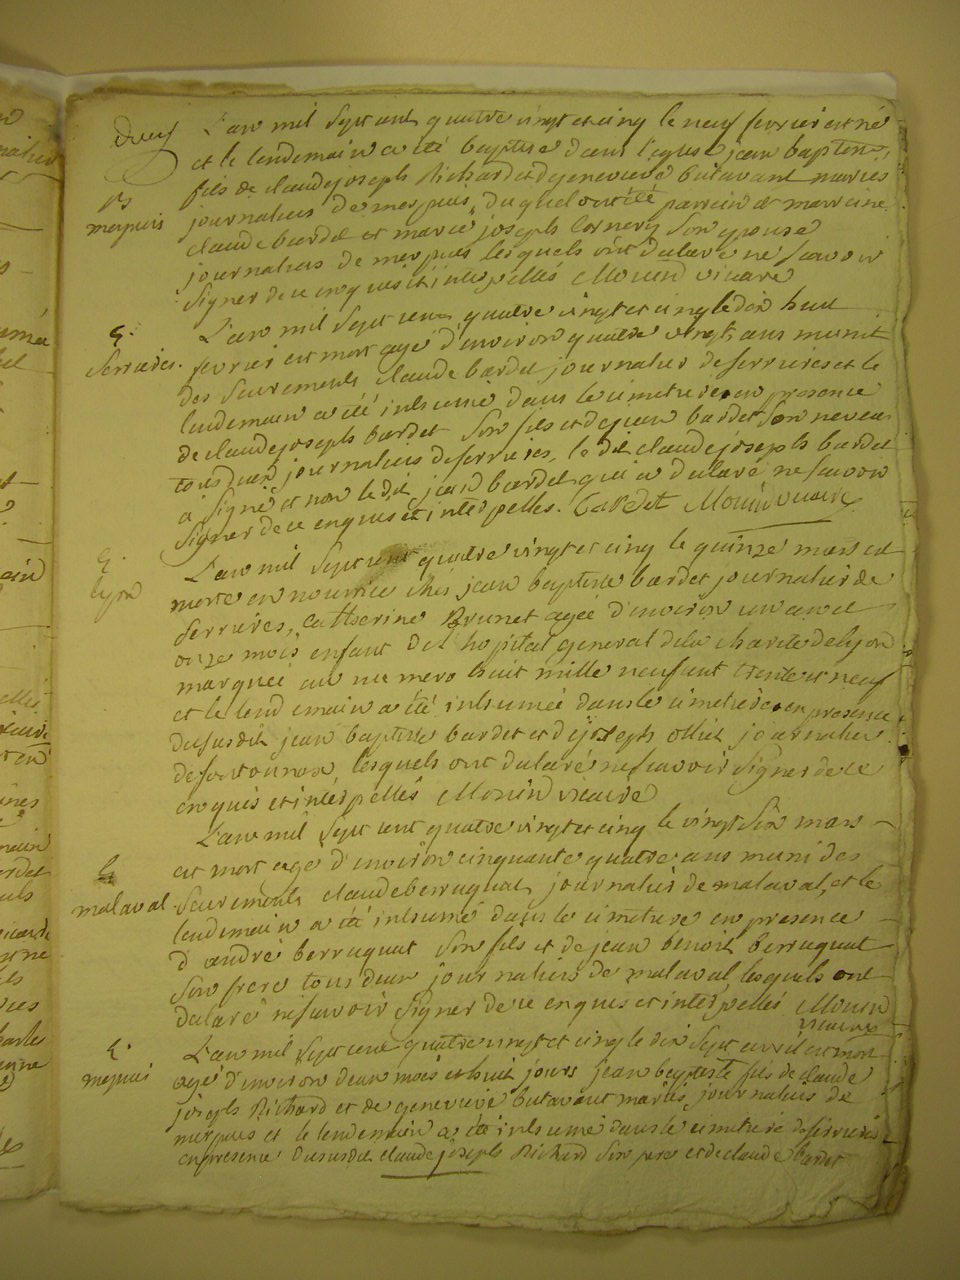 deux
L'an mil sept cent quatre vingt et cinq le neuf fevrier est né
et le lendemain a été baptisé dans l'eglise jean baptiste
fils de claude joseph Richard et de genevieve butavant mariés
Bs
merpuis
journaliers de merpuis, duquel ont été parrein et marreine
claude bardet et marie joseph cornery son epouse
journaliers de merpuis lesquels ont declaré ne scavoir
signer de ce enquis et interpellés Monin vicaire
L'an mil sept cent quatre vingt et cinq le dix huit
S.
serrieres.
fevrier est mort agé d'environ quatre vingt ans munit
des sacrements claude bardet journalier de serrieres et le
lendemain a été inhumé dans le cimetiere en presence
de claude joseph bardet son fils et de jean bardet son neveu
tous deux journaliers de serrieres, le dit claude joseph bardet
a signé et non le dit jean bardet qui a declaré ne scavoir
signer de ce enquis et interpelles. Bardet Monin vicaire
S.
lyon
L'an mil sept cent quatre vingt et cinq le quinze mars est
morte en nourrice chés jean baptiste bardet journalier de
serrieres, catherine Brunet agée d'environ un an et
onze mois enfant de l'hopital general de la charité de lyon
marquée au numero huit mille neuf cent trente et neuf
et le lendemain a été inhumée dans le cimetiere en presence
du susdit jean baptiste bardet et de joseph journalier
de lesquels ont declaré ne scavoir signer de ce
enquis et interpellés Monin vicaire
L'an mil sept cent quatre vingt et cinq le vingt six mars
S.
malaval.
est mort agé d'environ cinquante quatre ans muni des
sacrements claude berruquat journalier de malaval, et le
lendemain a été inhumé dans le cimetiere en presence
d'andré berruquat son fils et de jean benoit berruquat
son frere tous deux journaliers de malaval lesquels ont
declaré ne scavoir signer de ce enquis et interpellés Monin
vicaire
S.
mepuis
L'an mil sept cent quatre vingt et cinq le dix sept avril est mort
agé d'environ deux mois et huit jours jean baptiste fils de claude
joseph Richard et de genevieve butavant mariés, journaliers de
merpuis et le lendemain a été inhumé dans le cimetiere de serrieres
en presence du susdit claude joseph Richard son pere et de claude bardet